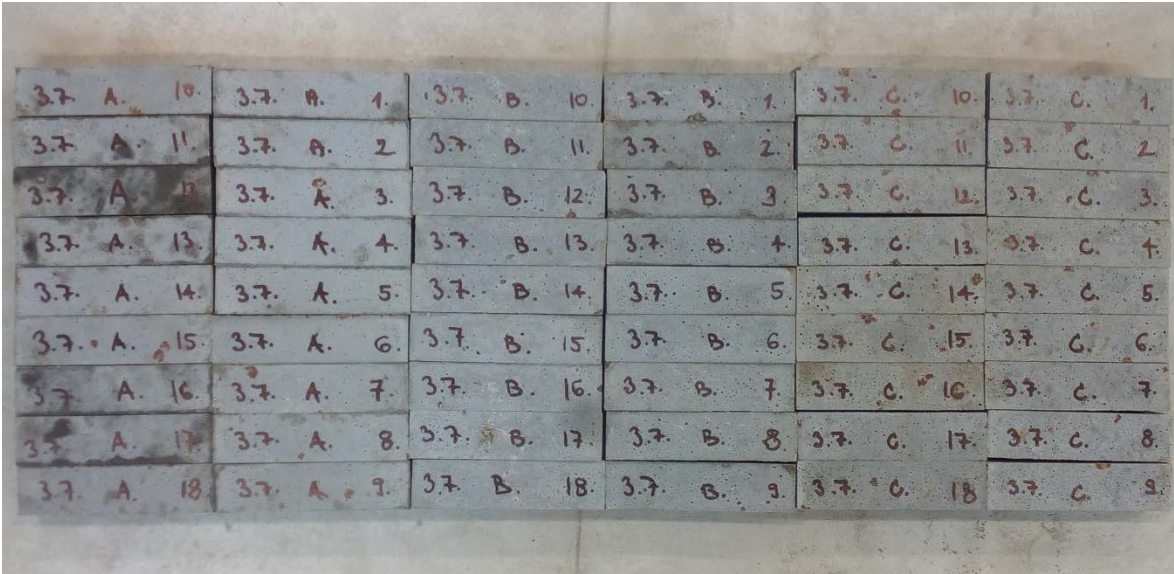 3.7 A. 10. 3.7. A. 1. 3.7. B. 10 3.7. B. 1. 3.7. C. 10. 3.7. C. 1.
3.7 A. 11. 3.7. A. 2 3.7. B. 11. 3.7. B. 2. 3.7. C. 11. 3.7. C. 2
3.7. A 12 3.7. A. 3. 3.7. B. 12. 3.7. B. 3 3.7. C. 12. 3.7. C. 3.
3.7. A. 13. 3.7. A. 4. 3.7. B. 13. 3.7. B. 4. 3.7. C. 13. 3.7. C. 4.
3.7. A. 14. 3.7. A. 5. 3.7. B. 14. 3.7. B. 5. 3.7. C. 14. 3.7. C. 5.
3.7. A. 15 3.7. A. 6 3.7. B. 15. 3.7. B. 6 3.7. C. 15. 3.7. C. 6.
3.7 A. 16 3.7. A. 7 3.7. B. 16. 3.7. B. 7 3.7. C. 16 3.7. C. 7
3.7. A. 17 3.7. A. 8. 3.7. B. 17. 3.7. B. 8 3.7. C. 17. 3.7. C. 8.
3.7. A. 18 3.7. A. 9. 3.7. B 18. 3.7. B. 9. 3.7. C. 18 3.7. C. 9.